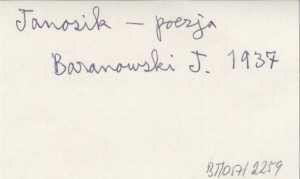 Janosik – poezja
Baranowski J. 1937
2259